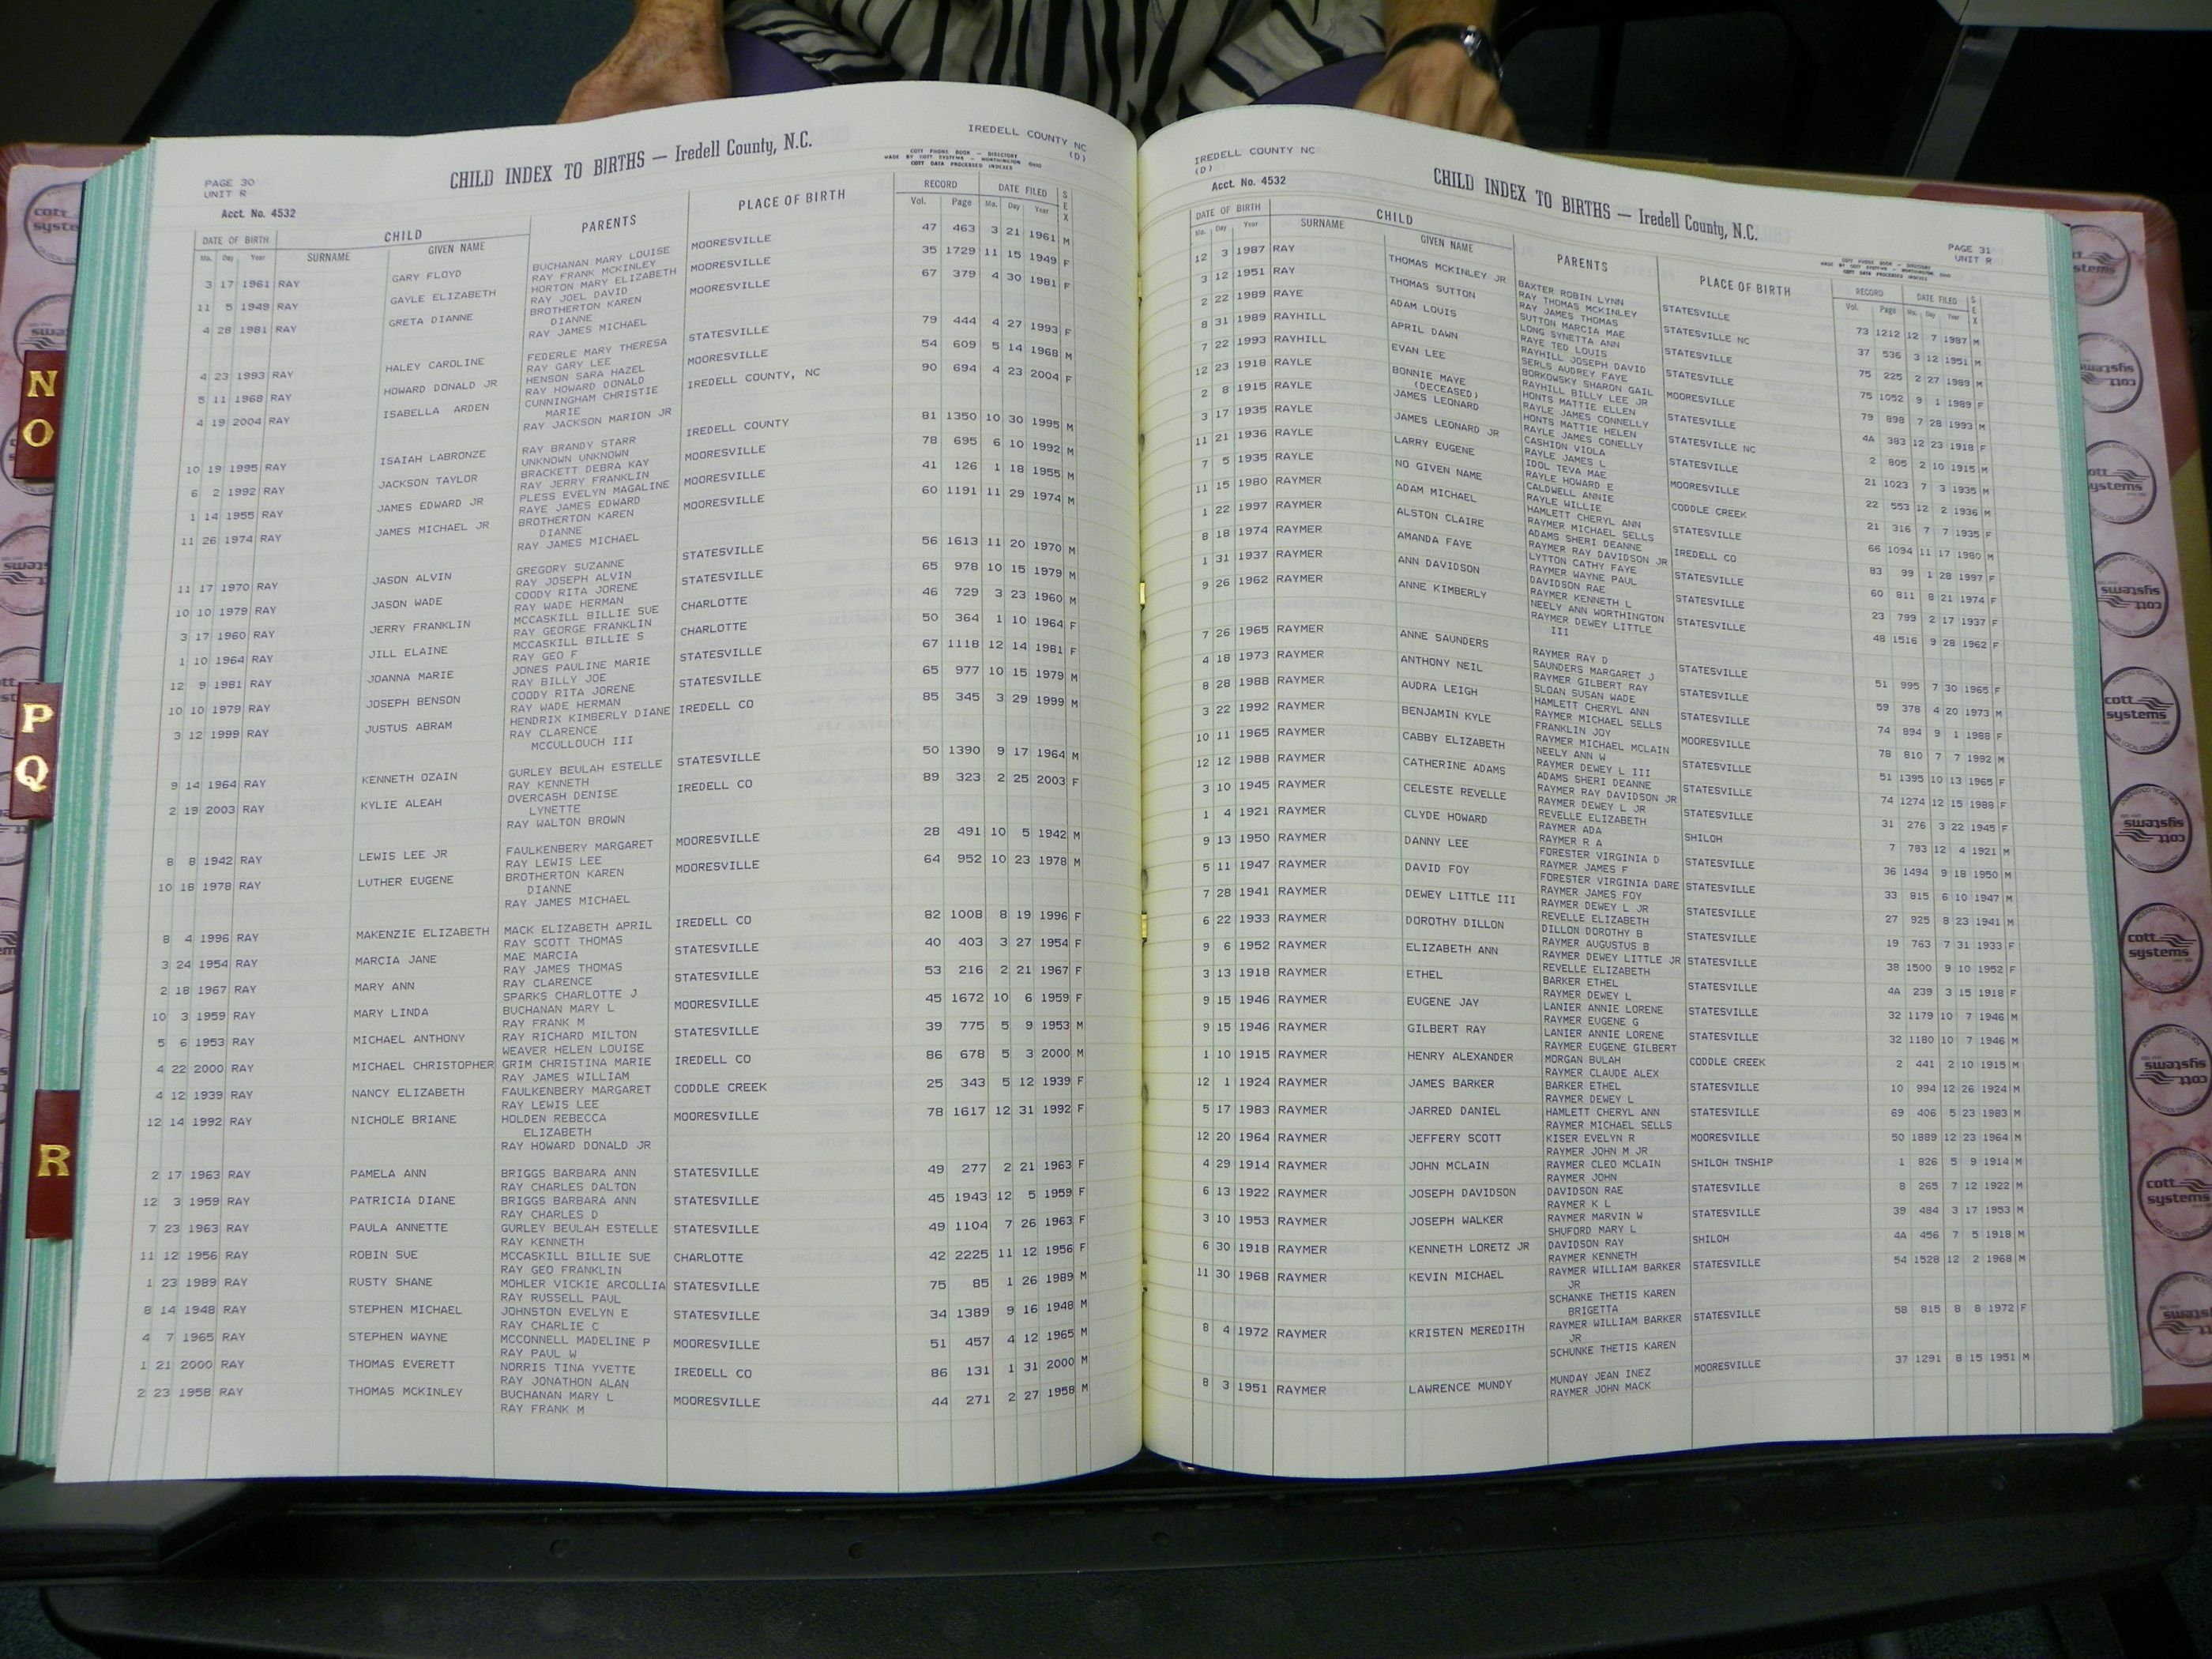 PAGE 30
UNIT R
CHILD INDEX TO BIRTHS — Iredell County, N.C.
IREDELL COUNTY NC
(D)
COTT PHONE BOOK — DIRECTORY
MADE BY COTT SYSTEMS — WORTHINGTON OHIO
COTT DATA PROCESSED INDEXES
Acct. No. 4532
DATE OF BIRTH CHILD PARENTS PLACE OF BIRTH RECORD DATE FILED SEX
Mo. Day Year SURNAME GIVEN NAME Vol. Page Mo. Day Year
3 17 1961 RAY GARY FLOYD BUCHANAN MARY LOUISE MOORESVILLE 47 463 3 21 1961 M
RAY FRANK MCKINLEY
11 5 1949 RAY GAYLE ELIZABETH HORTON MARY ELIZABETH MOORESVILLE 35 1729 11 15 1949 F
RAY JOEL DAVID
4 28 1981 RAY GRETA DIANNE BROTHERTON KAREN MOORESVILLE 67 379 4 30 1981 F
DIANNE
RAY JAMES MICHAEL
4 23 1993 RAY HALEY CAROLINE FEDERLE MARY THERESA STATESVILLE 79 444 4 27 1993 F
RAY GARY LEE
5 11 1968 RAY HOWARD DONALD JR HENSON SARA HAZEL MOORESVILLE 54 609 5 14 1968 M
RAY HOWARD DONALD
4 19 2004 RAY ISABELLA ARDEN CUNNINGHAM CHRISTIE IREDELL COUNTY, NC 90 694 4 23 2004 F
MARIE
RAY JACKSON MARION JR
10 19 1995 RAY ISAIAH LABRONZE RAY BRANDY STARR IREDELL COUNTY 81 1350 10 30 1995 M
UNKNOWN UNKNOWN
6 2 1992 RAY JACKSON TAYLOR BRACKETT DEBRA KAY MOORESVILLE 78 695 6 10 1992 M
RAY JERRY FRANKLIN
1 14 1955 RAY JAMES EDWARD JR PLESS EVELYN MAGALINE MOORESVILLE 41 126 1 18 1955 M
RAYE JAMES EDWARD
11 26 1974 RAY JAMES MICHAEL JR BROTHERTON KAREN MOORESVILLE 60 1191 11 29 1974 M
DIANNE
RAY JAMES MICHAEL
11 17 1970 RAY JASON ALVIN GREGORY SUZANNE STATESVILLE 56 1613 11 20 1970 M
RAY JOSEPH ALVIN
10 10 1979 RAY JASON WADE COODY RITA JORENE STATESVILLE 65 978 10 15 1979 M
RAY WADE HERMAN
3 17 1960 RAY JERRY FRANKLIN MCCASKILL BILLIE SUE CHARLOTTE 46 729 3 23 1960 M
RAY GEORGE FRANKLIN
1 10 1964 RAY JILL ELAINE MCCASKILL BILLIE S CHARLOTTE 50 364 1 10 1964 F
RAY GEO F
12 9 1981 RAY JOANNA MARIE JONES PAULINE MARIE STATESVILLE 67 1118 12 14 1981 F
RAY BILLY JOE
10 10 1979 RAY JOSEPH BENSON COODY RITA JORENE STATESVILLE 65 977 10 15 1979 M
RAY WADE HERMAN
3 12 1999 RAY JUSTUS ABRAM HENDRIX KIMBERLY DIANE IREDELL CO 85 345 3 29 1999 M
RAY CLARENCE
MCCULLOUCH III
9 14 1964 RAY KENNETH OZAIN GURLEY BEULAH ESTELLE STATESVILLE 50 1390 9 17 1964 M
RAY KENNETH
2 19 2003 RAY KYLIE ALEAH OVERCASH DENISE IREDELL CO 89 323 2 25 2003 F
LYNETTE
RAY WALTON BROWN
8 8 1942 RAY LEWIS LEE JR FAULKENBERY MARGARET MOORESVILLE 28 491 10 5 1942 M
RAY LEWIS LEE
10 18 1978 RAY LUTHER EUGENE BROTHERTON KAREN MOORESVILLE 64 952 10 23 1978 M
DIANNE
RAY JAMES MICHAEL
8 4 1996 RAY MAKENZIE ELIZABETH MACK ELIZABETH APRIL IREDELL CO 82 1008 8 19 1996 F
RAY SCOTT THOMAS
3 24 1954 RAY MARCIA JANE MAE MARCIA STATESVILLE 40 403 3 27 1954 F
RAY JAMES THOMAS
2 18 1967 RAY MARY ANN RAY CLARENCE STATESVILLE 53 216 2 21 1967 F
SPARKS CHARLOTTE J
10 3 1959 RAY MARY LINDA BUCHANAN MARY L MOORESVILLE 45 1672 10 6 1959 F
RAY FRANK M
5 6 1953 RAY MICHAEL ANTHONY RAY RICHARD MILTON STATESVILLE 39 775 5 9 1953 M
WEAVER HELEN LOUISE
4 22 2000 RAY MICHAEL CHRISTOPHER GRIM CHRISTINA MARIE IREDELL CO 86 678 5 3 2000 M
RAY JAMES WILLIAM
4 12 1939 RAY NANCY ELIZABETH FAULKENBERY MARGARET CODDLE CREEK 25 343 5 12 1939 F
RAY LEWIS LEE
12 14 1992 RAY NICHOLE BRIANE HOLDEN REBECCA MOORESVILLE 78 1617 12 31 1992 F
ELIZABETH
RAY HOWARD DONALD JR
2 17 1963 RAY PAMELA ANN BRIGGS BARBARA ANN STATESVILLE 49 277 2 21 1963 F
RAY CHARLES DALTON
12 3 1959 RAY PATRICIA DIANE BRIGGS BARBARA ANN STATESVILLE 45 1943 12 5 1959 F
RAY CHARLES D
7 23 1963 RAY PAULA ANNETTE GURLEY BEULAH ESTELLE STATESVILLE 49 1104 7 26 1963 F
RAY KENNETH
11 12 1956 RAY ROBIN SUE MCCASKILL BILLIE SUE CHARLOTTE 42 2225 11 12 1956 F
RAY GEO FRANKLIN
1 23 1989 RAY RUSTY SHANE MOHLER VICKIE ARCOLLIA STATESVILLE 75 85 1 26 1989 M
RAY RUSSELL PAUL
8 14 1948 RAY STEPHEN MICHAEL JOHNSTON EVELYN E STATESVILLE 34 1389 9 16 1948 M
RAY CHARLIE C
4 7 1965 RAY STEPHEN WAYNE MCCONNELL MADELINE P MOORESVILLE 51 457 4 12 1965 M
RAY PAUL W
1 21 2000 RAY THOMAS EVERETT NORRIS TINA YVETTE IREDELL CO 86 131 1 31 2000 M
RAY JONATHON ALAN
2 23 1958 RAY THOMAS MCKINLEY BUCHANAN MARY L MOORESVILLE 44 271 2 27 1958 M
RAY FRANK M
IREDELL COUNTY NC
(D)
Acct. No. 4532
CHILD INDEX TO BIRTHS — Iredell County, N.C.
PAGE 31
UNIT R
DATE OF BIRTH CHILD PARENTS PLACE OF BIRTH RECORD DATE FILED SEX
Mo. Day Year SURNAME GIVEN NAME Vol. Page Mo. Day Year
12 3 1987 RAY THOMAS MCKINLEY JR BAXTER ROBIN LYNN STATESVILLE 73 1212 12 7 1987 M
RAY THOMAS MCKINLEY
3 12 1951 RAY THOMAS SUTTON RAY JAMES THOMAS STATESVILLE NC 37 536 3 12 1951 M
SUTTON MARCIA MAE
2 22 1989 RAYE ADAM LOUIS LONG SYNETTA ANN STATESVILLE 75 225 2 27 1989 M
RAYE TED LOUIS
8 31 1989 RAYHILL APRIL DAWN RAYHILL JOSEPH DAVID STATESVILLE 75 1052 9 1 1989 F
SERLS AUDREY FAYE
7 22 1993 RAYHILL EVAN LEE BORKOWSKY SHARON GAIL MOORESVILLE 79 898 7 28 1993 M
RAYHILL BILLY LEE JR
12 23 1918 RAYLE BONNIE MAYE HONTS MATTIE ELLEN STATESVILLE 4A 383 12 23 1918 F
(DECEASED) RAYLE JAMES CONNELLY
2 8 1915 RAYLE JAMES LEONARD HONTS MATTIE HELEN STATESVILLE NC 2 805 2 10 1915 M
RAYLE JAMES CONELLY
3 17 1935 RAYLE JAMES LEONARD JR CASHION VIOLA STATESVILLE 21 1023 7 3 1935 M
RAYLE JAMES L
11 21 1936 RAYLE LARRY EUGENE IDOL TEVA MAE MOORESVILLE 22 553 12 2 1936 M
RAYLE HOWARD E
7 5 1935 RAYLE NO GIVEN NAME CALDWELL ANNIE CODDLE CREEK 21 316 7 7 1935 F
RAYLE WILLIE
11 15 1980 RAYMER ADAM MICHAEL HAMLETT CHERYL ANN STATESVILLE 66 1094 11 17 1980 M
RAYMER MICHAEL SELLS
1 22 1997 RAYMER ALSTON CLAIRE ADAMS SHERI DEANNE IREDELL CO 83 99 1 28 1997 F
RAYMER RAY DAVIDSON JR
8 18 1974 RAYMER AMANDA FAYE LYTTON CATHY FAYE STATESVILLE 60 811 8 21 1974 F
RAYMER WAYNE PAUL
1 31 1937 RAYMER ANN DAVIDSON DAVIDSON RAE STATESVILLE 23 799 2 17 1937 F
RAYMER KENNETH L
9 26 1962 RAYMER ANNE KIMBERLY NEELY ANN WORTHINGTON STATESVILLE 48 1516 9 28 1962 F
RAYMER DEWEY LITTLE
III
7 26 1965 RAYMER ANNE SAUNDERS RAYMER RAY D STATESVILLE 51 995 7 30 1965 F
SAUNDERS MARGARET J
4 18 1973 RAYMER ANTHONY NEIL RAYMER GILBERT RAY STATESVILLE 59 378 4 20 1973 M
SLOAN SUSAN WADE
8 28 1988 RAYMER AUDRA LEIGH HAMLETT CHERYL ANN STATESVILLE 74 894 9 1 1988 F
RAYMER MICHAEL SELLS
3 22 1992 RAYMER BENJAMIN KYLE FRANKLIN JOY MOORESVILLE 78 810 7 7 1992 M
RAYMER MICHAEL MCLAIN
10 11 1965 RAYMER CABBY ELIZABETH NEELY ANN W STATESVILLE 51 1395 10 13 1965 F
RAYMER DEWEY L III
12 12 1988 RAYMER CATHERINE ADAMS ADAMS SHERI DEANNE STATESVILLE 74 1274 12 15 1988 F
RAYMER RAY DAVIDSON JR
3 10 1945 RAYMER CELESTE REVELLE RAYMER DEWEY L JR STATESVILLE 31 276 3 22 1945 F
REVELLE ELIZABETH
1 4 1921 RAYMER CLYDE HOWARD RAYMER ADA SHILOH 7 783 12 4 1921 M
RAYMER R A
9 13 1950 RAYMER DANNY LEE FORESTER VIRGINIA D STATESVILLE 36 1494 9 18 1950 M
RAYMER JAMES F
5 11 1947 RAYMER DAVID FOY FORESTER VIRGINIA DARE STATESVILLE 33 815 6 10 1947 M
RAYMER JAMES FOY
7 28 1941 RAYMER DEWEY LITTLE III RAYMER DEWEY L JR STATESVILLE 27 925 8 23 1941 M
REVELLE ELIZABETH
6 22 1933 RAYMER DOROTHY DILLON DILLON DOROTHY B STATESVILLE 19 763 7 31 1933 F
RAYMER AUGUSTUS B
9 6 1952 RAYMER ELIZABETH ANN RAYMER DEWEY LITTLE JR STATESVILLE 38 1500 9 10 1952 F
REVELLE ELIZABETH
3 13 1918 RAYMER ETHEL BARKER ETHEL STATESVILLE 4A 239 3 15 1918 F
RAYMER DEWEY L
9 15 1946 RAYMER EUGENE JAY LANIER ANNIE LORENE STATESVILLE 32 1179 10 7 1946 M
RAYMER EUGENE G
9 15 1946 RAYMER GILBERT RAY LANIER ANNIE LORENE STATESVILLE 32 1180 10 7 1946 M
RAYMER EUGENE GILBERT
1 10 1915 RAYMER HENRY ALEXANDER MORGAN BULAH CODDLE CREEK 2 441 2 10 1915 M
RAYMER CLAUDE ALEX
12 1 1924 RAYMER JAMES BARKER BARKER ETHEL STATESVILLE 10 994 12 26 1924 M
RAYMER DEWEY L
5 17 1983 RAYMER JARRED DANIEL HAMLETT CHERYL ANN STATESVILLE 69 406 5 23 1983 M
RAYMER MICHAEL SELLS
12 20 1964 RAYMER JEFFERY SCOTT KISER EVELYN R MOORESVILLE 50 1889 12 23 1964 M
RAYMER JOHN M JR
4 29 1914 RAYMER JOHN MCLAIN RAYMER CLEO MCLAIN SHILOH TNSHIP 1 826 5 9 1914 M
RAYMER JOHN
6 13 1922 RAYMER JOSEPH DAVIDSON DAVIDSON RAE STATESVILLE 8 265 7 12 1922 M
RAYMER K L
3 10 1953 RAYMER JOSEPH WALKER RAYMER MARVIN W STATESVILLE 39 484 3 17 1953 M
SHUFORD MARY L
6 30 1918 RAYMER KENNETH LORETZ JR DAVIDSON RAY SHILOH 4A 456 7 5 1918 M
RAYMER KENNETH
11 30 1968 RAYMER KEVIN MICHAEL RAYMER WILLIAM BARKER STATESVILLE 54 1528 12 2 1968 M
JR
SCHANKE THETIS KAREN
BRIGETTA
8 4 1972 RAYMER KRISTEN MEREDITH RAYMER WILLIAM BARKER STATESVILLE 58 815 8 8 1972 F
JR
SCHUNKE THETIS KAREN
8 3 1951 RAYMER LAWRENCE MUNDY MUNDAY JEAN INEZ MOORESVILLE 37 1291 8 15 1951 M
RAYMER JOHN MACK
N
O
P
Q
R
cott systems